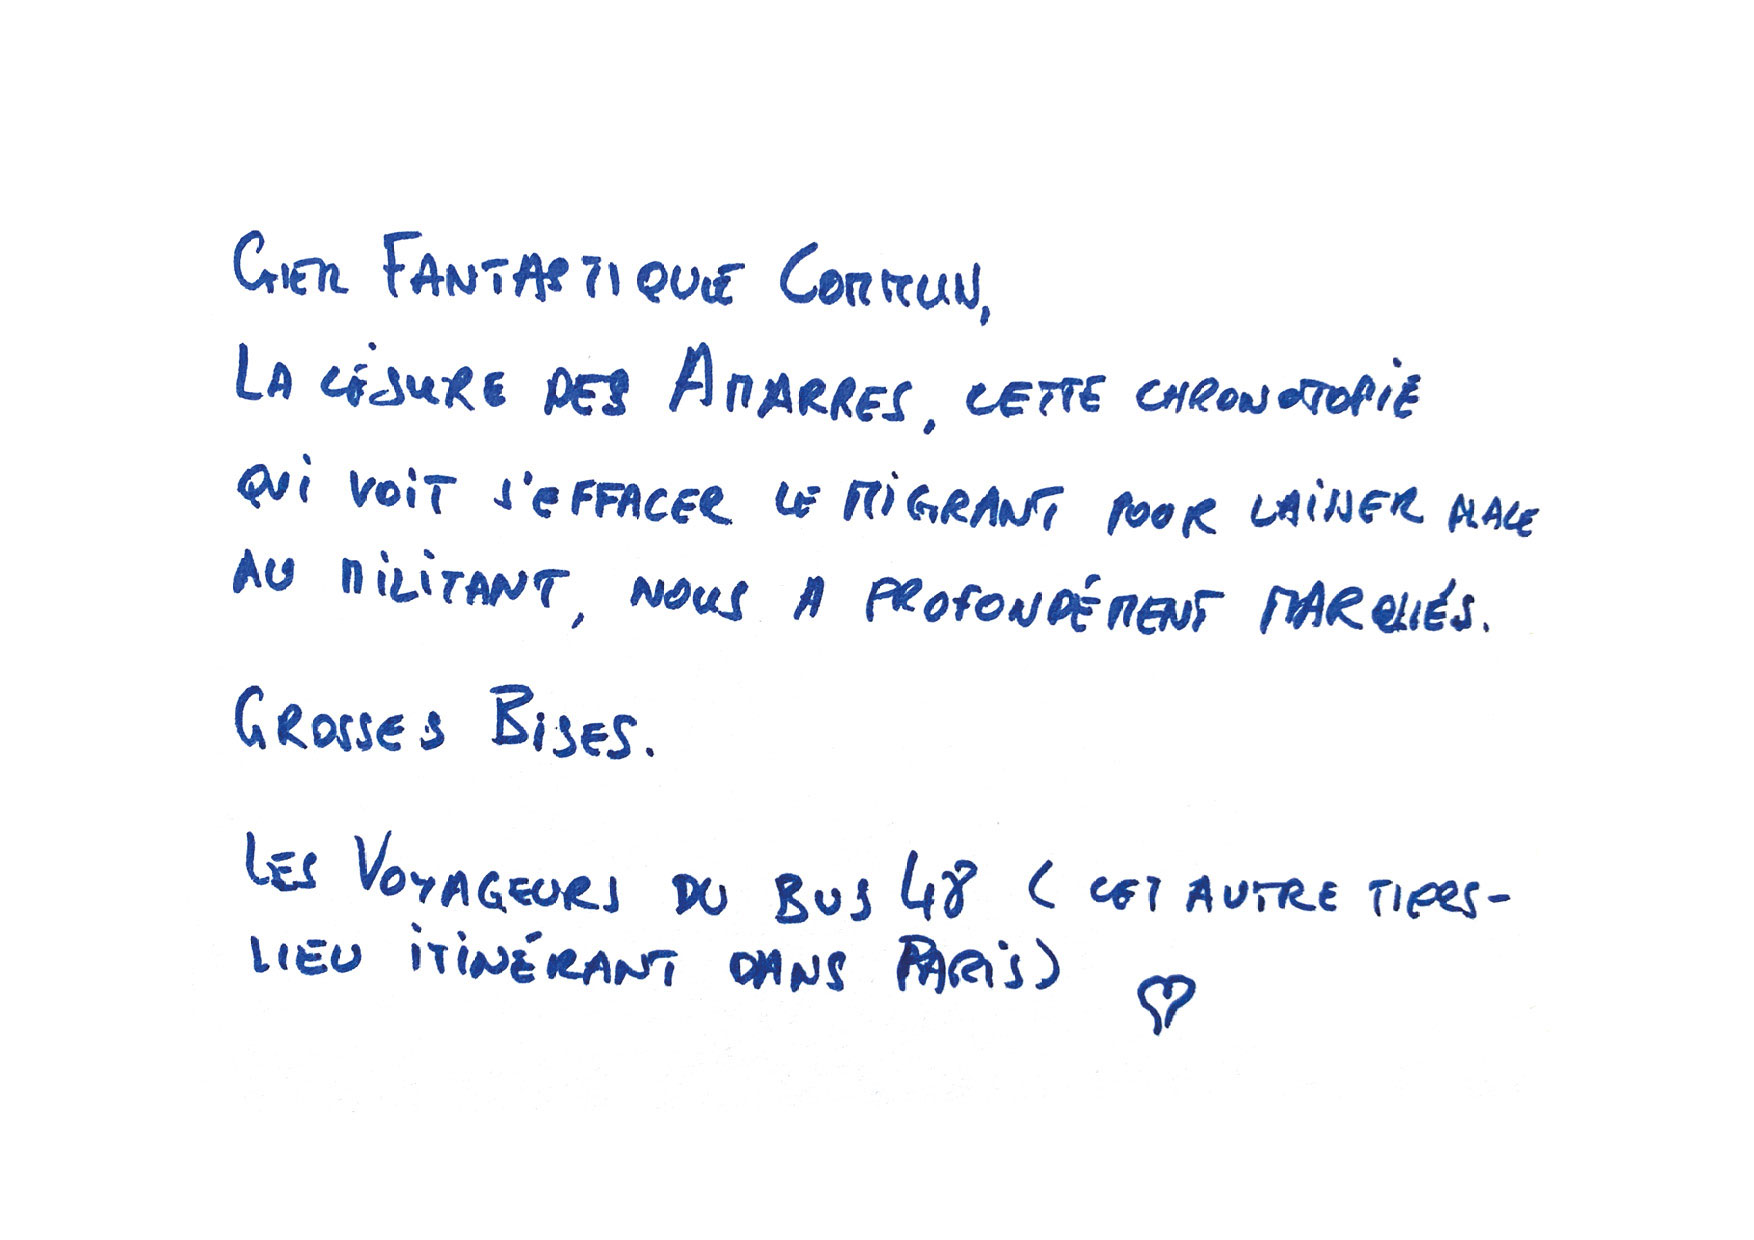 Cher Fantastique Commun,
La césure des Amarres, cette chronotopie
qui voit s'effacer le migrant pour laisser place
au militant, nous a profondément marqués.
Grosses Bises.
Les Voyageurs du bus 48 (cet autre tiers-
lieu itinérant dans Paris)